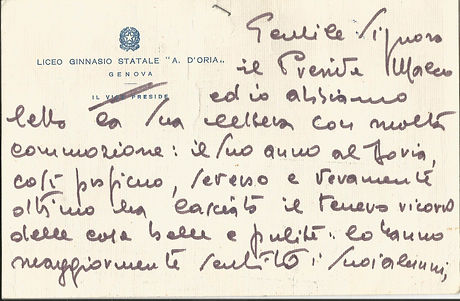 LICEO GINNASIO STATALE "A. D'ORIA"
GENOVA
IL VICE PRESIDE
Gentile Signora
il Preside Marco
ed io abbiamo
letto la Sua lettera con molta
commozione: il Suo anno al Doria,
così proficuo, sereno e veramente
ottimo ha lasciato il tenero ricordo
delle cose belle e pulite: lo hanno
maggiormente sentito i Suoi alunni,